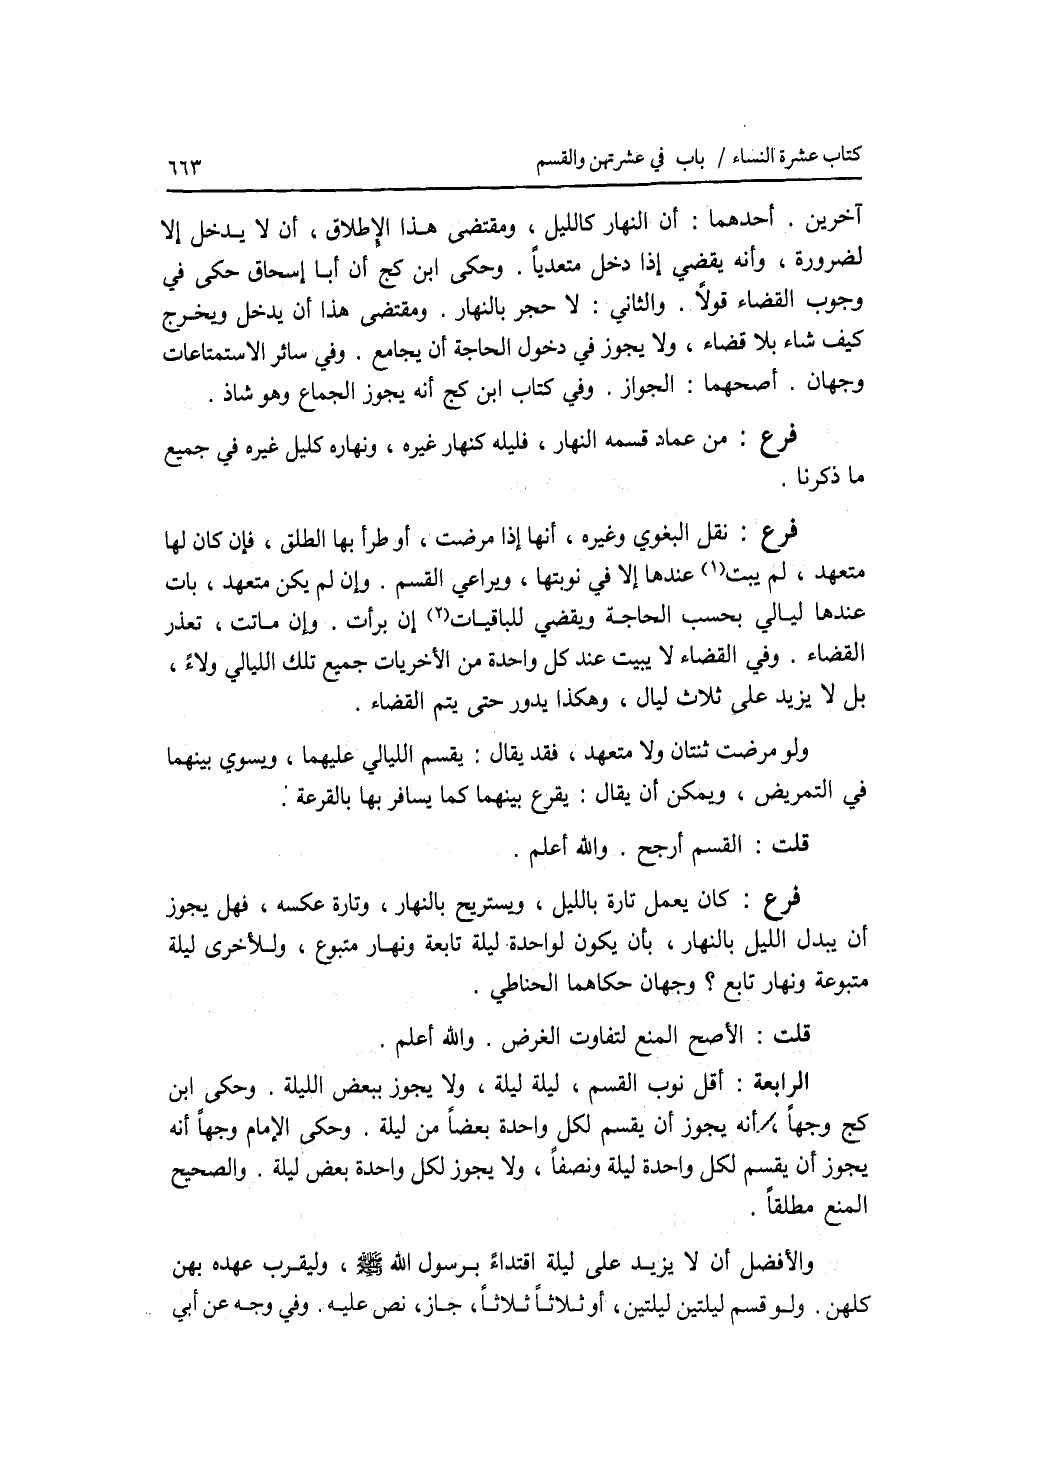 كتاب عشرة النساء / باب في عشرتهن والقسم ٦٦٣
آخرين . أحدهما : أن النهار كالليل ، ومقتضى هذا الإطلاق ، أن لا يدخل إلا
لضرورة ، وأنه يقضي إذا دخل متعدياً . وحكى ابن كج أن أبا إسحاق حكى في
وجوب القضاء قولاً . والثاني : لا حجر بالنهار . ومقتضى هذا أن يدخل ويخرج
كيف شاء بلا قضاء ، ولا يجوز في دخول الحاجة أن يجامع . وفي سائر الاستمتاعات
وجهان . أصحهما : الجواز . وفي كتاب ابن كج أنه يجوز الجماع وهو شاذ .
فرع : من عماد قسمه النهار ، فليله كنهار غيره ، ونهاره كليل غيره في جميع
ما ذكرنا .
فرع : نقل البغوي وغيره ، أنها إذا مرضت ، أو طرأ بها الطلق ، فإن كان لها
متعهد ، لم يبت(١) عندها إلا في نوبتها ، ويراعي القسم . وإن لم يكن متعهد ، بات
عندها ليالي بحسب الحاجة ويقضي للباقيات(٢) إن برأت . وإن ماتت ، تعذر
القضاء . وفي القضاء لا يبيت عند كل واحدة من الأخريات جميع تلك الليالي ولاءً ،
بل لا يزيد على ثلاث ليال ، وهكذا يدور حتى يتم القضاء .
ولو مرضت ثنتان ولا متعهد ، فقد يقال : يقسم الليالي عليهما ، ويسوي بينهما
في التمريض ، ويمكن أن يقال : يقرع بينهما كما يسافر بها بالقرعة .
قلت : القسم أرجح . والله أعلم .
فرع : كان يعمل تارة بالليل ، ويستريح بالنهار ، وتارة عكسه ، فهل يجوز
أن يبدل الليل بالنهار ، بأن يكون لواحدة ليلة تابعة ونهار متبوع ، وللأخرى ليلة
متبوعة ونهار تابع ؟ وجهان حكاهما الحناطي .
قلت : الأصح المنع لتفاوت الغرض . والله أعلم .
الرابعة : أقل نوب القسم ، ليلة ليلة ، ولا يجوز ببعض الليلة . وحكى ابن
كج وجهاً ، أنه يجوز أن يقسم لكل واحدة بعضاً من ليلة . وحكى الإمام وجهاً أنه
يجوز أن يقسم لكل واحدة ليلة ونصفاً ، ولا يجوز لكل واحدة بعض ليلة . والصحيح
المنع مطلقاً .
والأفضل أن لا يزيد على ليلة اقتداءً برسول الله ﷺ ، وليقرب عهده بهن
كلهن . ولو قسم ليلتين ليلتين، أو ثلاثاً ثلاثاً، جاز، نص عليه. وفي وجه عن أبي